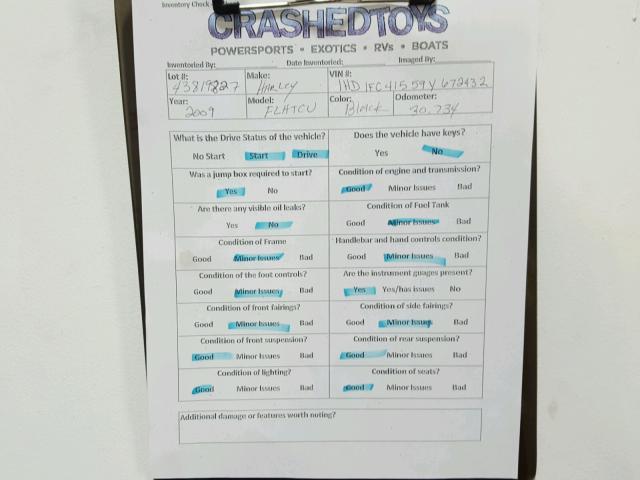 Inventory Check
CRASHEDTOYS
POWERSPORTS • EXOTICS • RVs • BOATS
Inventoried By: Date Inventoried: Imaged By:
Lot #: 43819227 Make: HARLEY VIN #: 1HD1FC41559Y672432
Year: 2009 Model: FLHTCU Color: Black Odometer: 30,734
What is the Drive Status of the vehicle? Does the vehicle have keys?
No Start Start Drive Yes No
Was a jump box required to start? Condition of engine and transmission?
Yes No Good Minor Issues Bad
Are there any visible oil leaks? Condition of Fuel Tank
Yes No Good Minor Issues Bad
Condition of Frame Handlebar and hand controls condition?
Good Minor Issues Bad Good Minor Issues Bad
Condition of the foot controls? Are the instrument guages present?
Good Minor Issues Bad Yes Yes/has issues No
Condition of front fairings? Condition of side fairings?
Good Minor Issues Bad Good Minor Issues Bad
Condition of front suspension? Condition of rear suspension?
Good Minor Issues Bad Good Minor Issues Bad
Condition of lighting? Condition of seats?
Good Minor Issues Bad Good Minor Issues Bad
Additional damage or features worth noting?